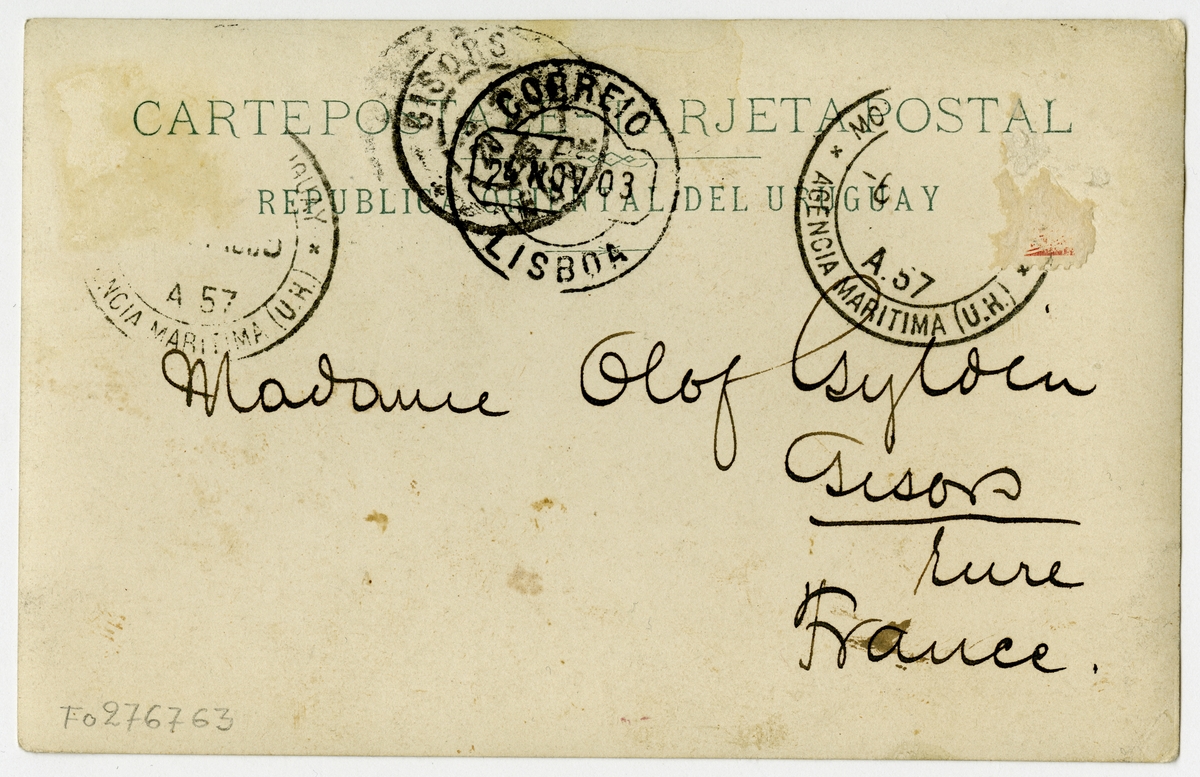 CARTE POSTALE - TARJETA POSTAL
REPUBLICA ORIENTAL DEL URUGUAY
GISORS
CORREIO
NOV 03
LISBOA
A 57
NCIA MARITIMA (U.H.)
MO
A. 57
AGENCIA MARITIMA (U.H.)
Madame Olof Gyldén
Gisors
Eure
France.
Fo276763